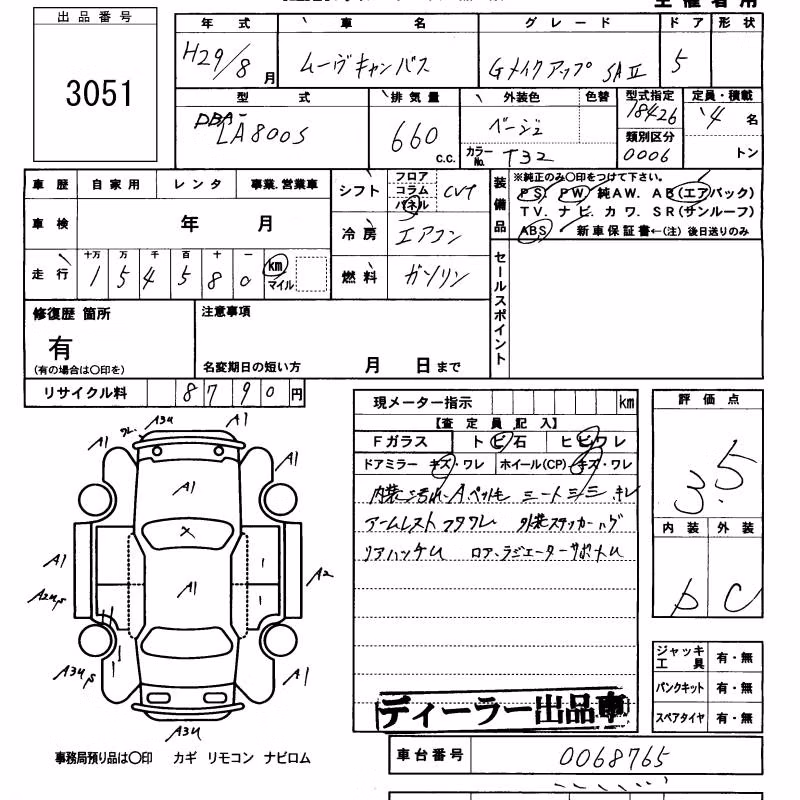 出品番号
3051
年式 車名 グレード ドア 形状
H29/8月 ムーヴキャンバス Gメイクアップ SAⅡ 5
型式 排気量 外装色 色替 型式指定 定員・積載
DBA-LA800S 660 c.c. ベージュ 18426 4名
カラーNo. T32 類別区分 0006 トン
車歴 自家用 レンタ 事業.営業車
シフト フロア コラム パネル CVT
装備品 ※純正のみ○印をつけて下さい。
PS. PW. 純AW. AB(エアバック)
TV. ナビ. カワ. SR(サンルーフ)
ABS. 新車保証書←(注) 後日送りのみ
車検 年 月
冷房 エアコン
走行 十万 万 千 百 十 一 km マイル
154580
燃料 ガソリン
セールスポイント
修復歴 箇所
有
(有の場合は○印を)
注意事項
名変期日の短い方 月 日まで
リサイクル料 8790円
現メーター指示 km
【査定員記入】
Fガラス トビ石 ヒビワレ
ドアミラー キズ・ワレ ホイール(CP) キズ・ワレ
アームレストフタワレ 外装ステッカーハゲ
評価点
3.5
内装 外装
D C
ジャッキ工具 有・無
パンクキット 有・無
スペアタイヤ 有・無
ディーラー出品車
車台番号 0068765
A3U A1
A1 A1
A1
A1 A1 A2
A1
A3U
事務局預り品は○印 カギ リモコン ナビロム